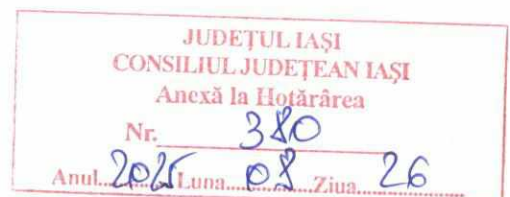 JUDEȚUL IAȘI
CONSILIUL JUDEȚEAN IAȘI
Anexă la Hotărârea
Nr. 380
Anul 2025 Luna 08 Ziua 26